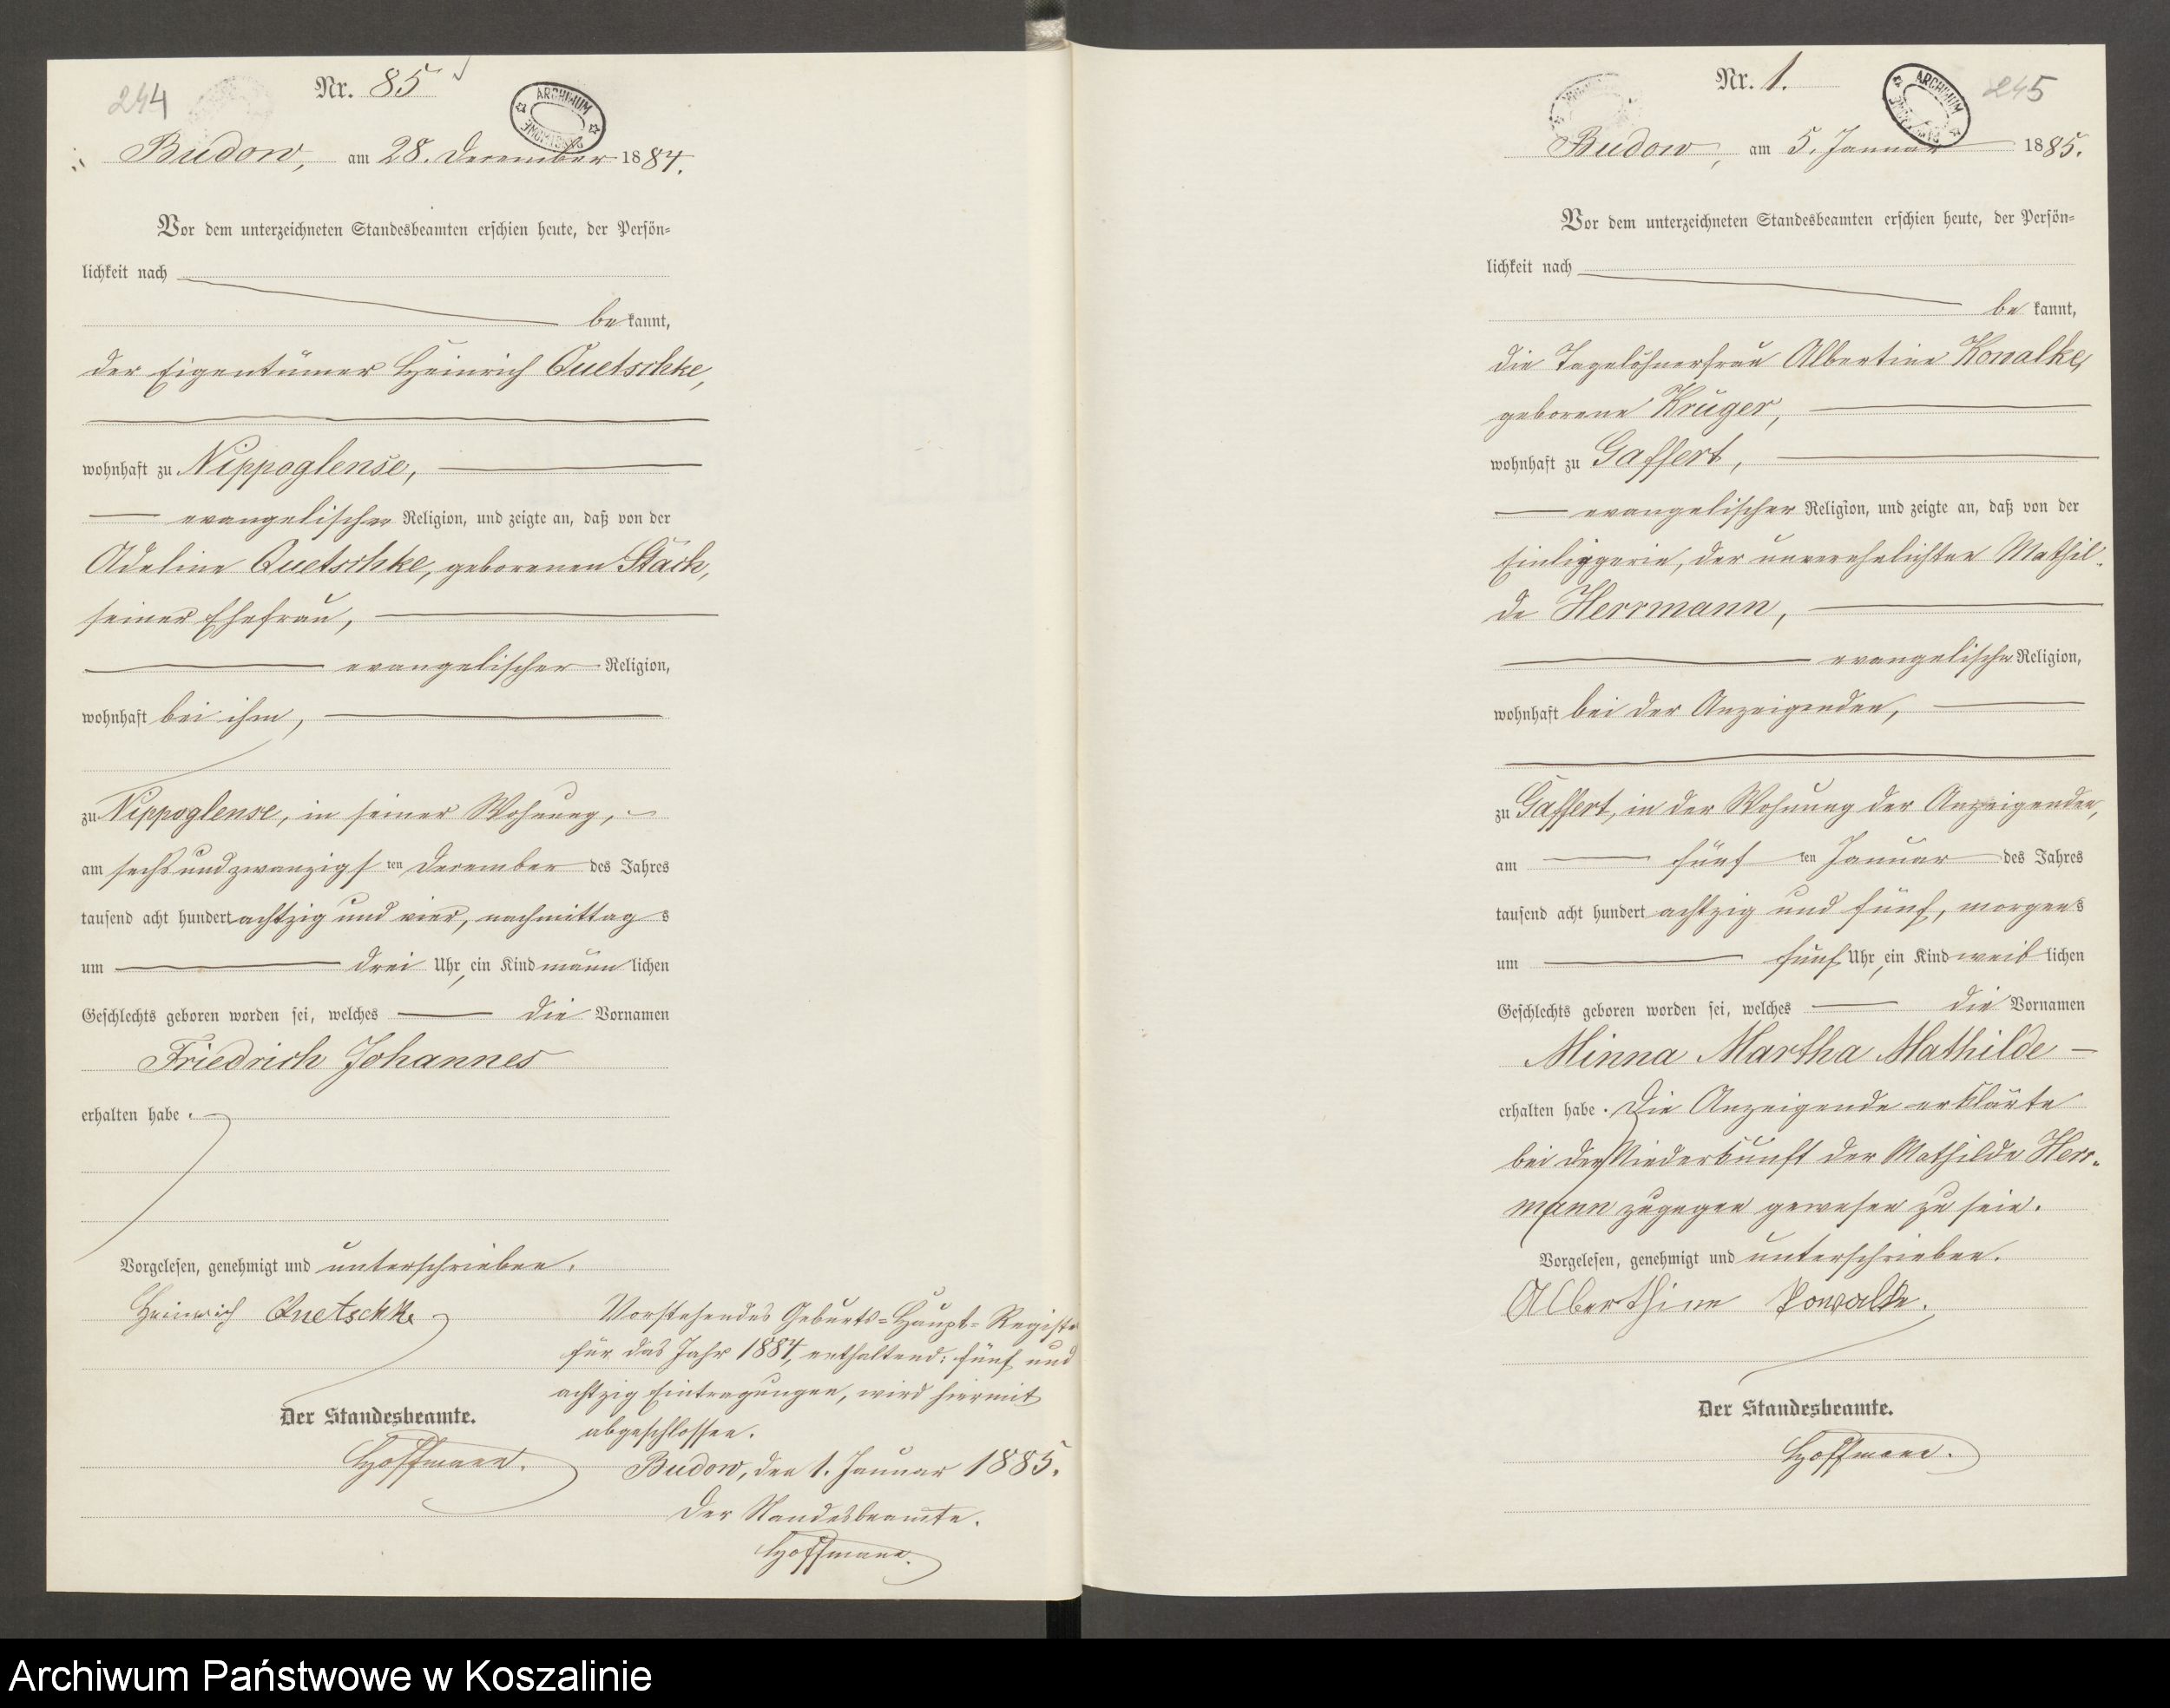 244
Nr. 85
ARCHIWUM
Budow, am 28. Dezember 1884.
Vor dem unterzeichneten Standesbeamten erschien heute, der Persön=
lichkeit nach
bekannt,
der Eigentümer Heinrich Quetschke,
wohnhaft zu Nippoglense,
evangelischer Religion, und zeigte an, daß von der
Adeline Quetschke, geborenen Stäch,
seiner Ehefrau,
evangelischer Religion,
wohnhaft bei ihm,
zu Nippoglense, in seiner Wohnung,
am sechsundzwanzigsten Dezember des Jahres
tausend acht hundert achtzig und vier, nachmittags
um drei Uhr, ein Kind männlichen
Geschlechts geboren worden sei, welches die Vornamen
Friedrich Johannes
erhalten habe.
Vorgelesen, genehmigt und unterschrieben.
Heinrich Quetschke
Der Standesbeamte.
Hoffmann.
Vorstehendes Geburts=Haupt=Register
für das Jahr 1884, enthaltend: fünf und
achtzig Eintragungen, wird hiermit
abgeschlossen.
Budow, den 1. Januar 1885.
Der Standesbeamte.
Hoffmann.
245
Nr. 1.
ARCHIWUM
Budow, am 5. Januar 1885.
Vor dem unterzeichneten Standesbeamten erschien heute, der Persön=
lichkeit nach
bekannt,
die Tagelöhnerfrau Albertine Kowalke,
geborene Krüger,
wohnhaft zu Gaffert,
evangelischer Religion, und zeigte an, daß von der
Einliggerin, der unverehelichten Mathil-
de Herrmann,
evangelischer Religion,
wohnhaft bei der Anzeigenden,
zu Gaffert, in der Wohnung der Anzeigenden,
am fünften Januar des Jahres
tausend acht hundert achtzig und fünf, morgens
um fünf Uhr, ein Kind weiblichen
Geschlechts geboren worden sei, welches die Vornamen
Minna Martha Mathilde
erhalten habe. Die Anzeigende erklärte
bei der Niederkunft der Mathilde Herr-
mann zugegen gewesen zu sein.
Vorgelesen, genehmigt und unterschrieben.
Alberthine Kowalke.
Der Standesbeamte.
Hoffmann.
Archiwum Państwowe w Koszalinie